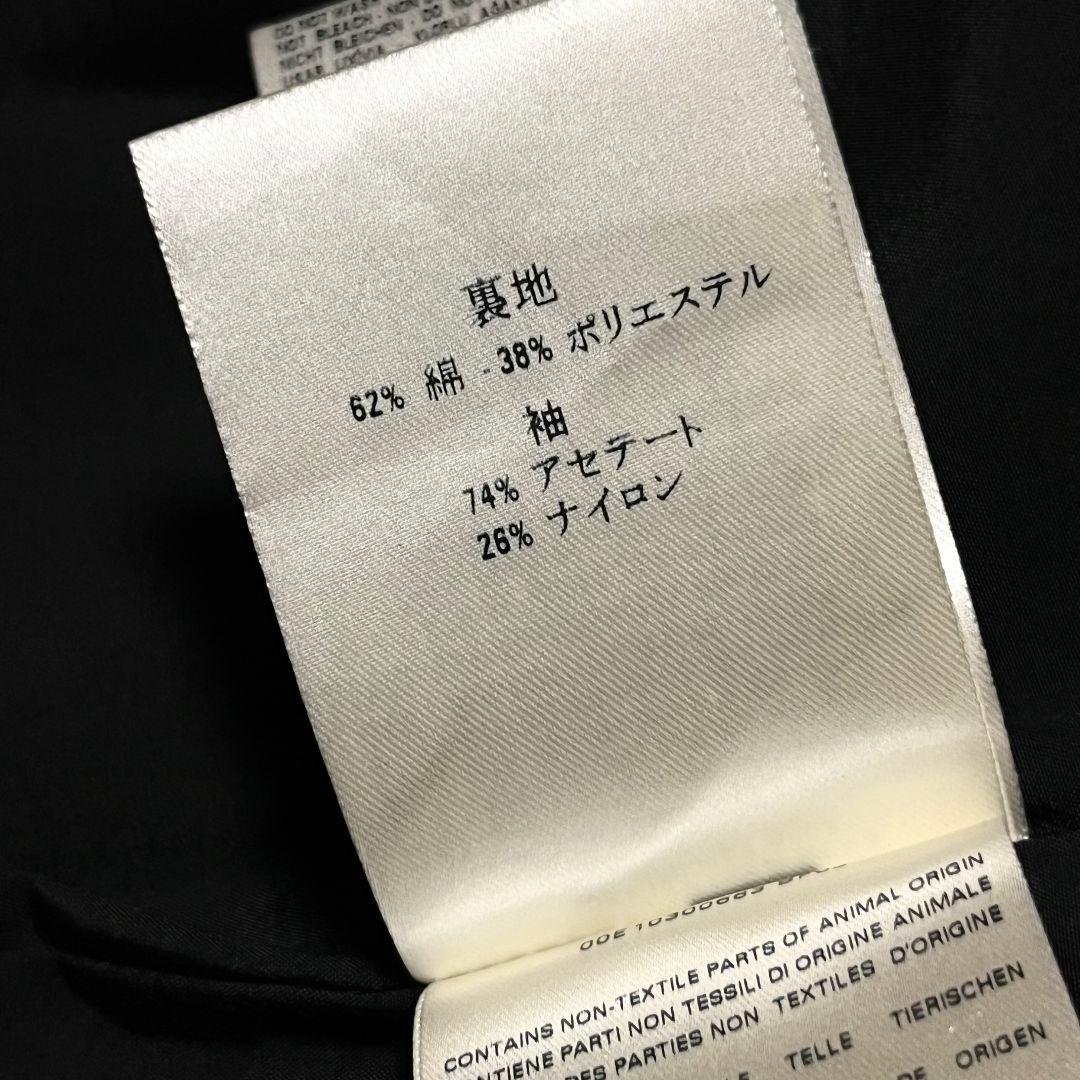 DO NOT WASH
NOT BLEACH - NON
NICHT BLEICHEN - DO NO
裏地
62% 綿 - 38% ポリエステル
袖
74% アセテート
26% ナイロン
CONTAINS NON-TEXTILE PARTS OF ANIMAL ORIGIN
PARTI NON TESSILI DI ORIGINE ANIMALE
DES PARTIES NON TEXTILES D'ORIGINE
TELLE TIERISCHEN
DE ORIGEN